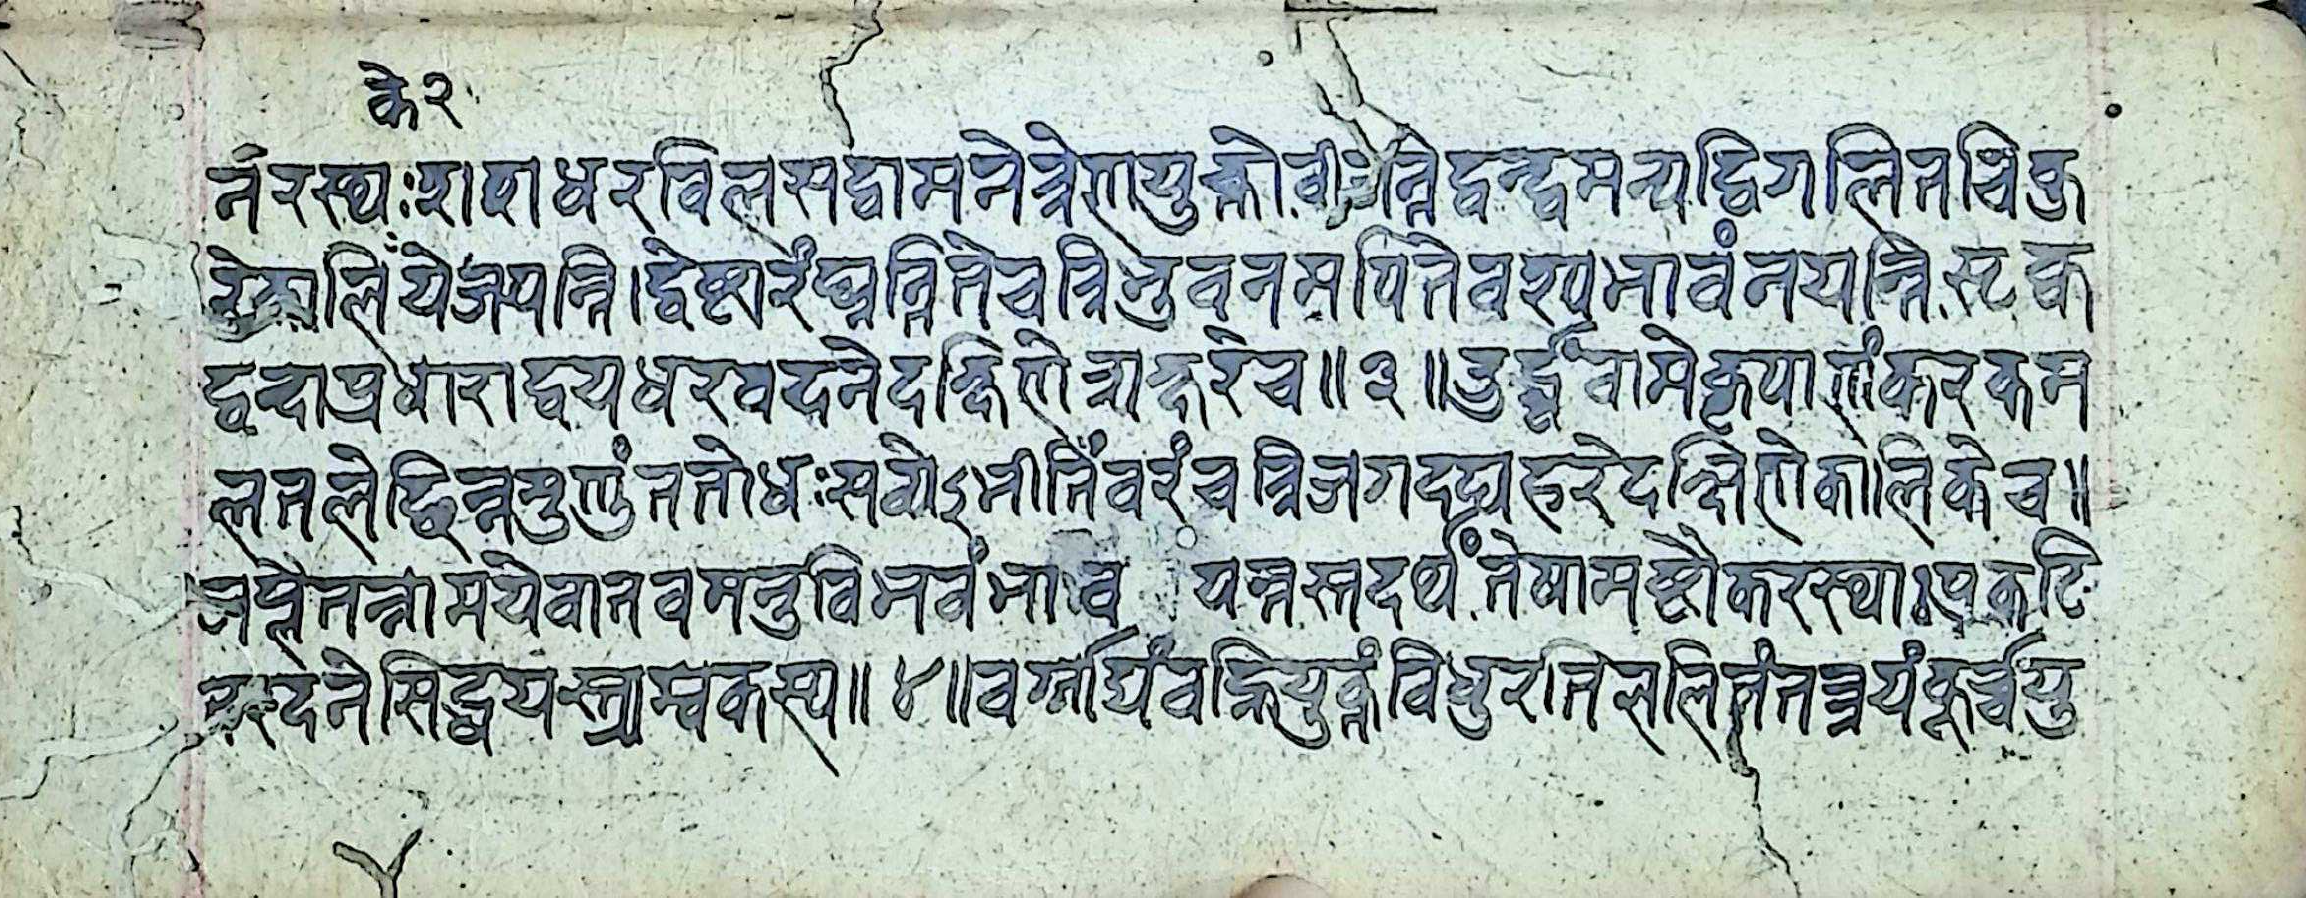 के २
र्नरस्थः शशधरविलसद्वामनेत्रेणयुक्तो बीजन्तेद्वन्द्वमन्यद्विगलितचिकु
रेकालि येजपन्ति। द्वेष्टारंघ्नन्तितेचत्रिभुवनमपितेवश्यभावंनयन्तिसृक्क
द्वन्दाश्रधाराद्वयधरवदनेदक्षिणेत्राक्षरेच॥३॥उर्द्ध्वंवामेकृपाणंकरकम
लतलेछिन्नमुण्डंततोधःसवोऽभीतिंवरंचत्रिजगदद्यहरेदक्षिणेकालिकेच॥
जप्त्वेतन्नामयेवातवमनुविभवंभाव यन्तस्तदर्थं तेषामष्टौकरस्थाः प्रकटि
रदनेसिद्धयस्त्र्यम्बकस्य॥४॥वर्गाद्यंवह्नियुक्तंविधुरतिललितंतत्त्रयंकूर्च्चयु